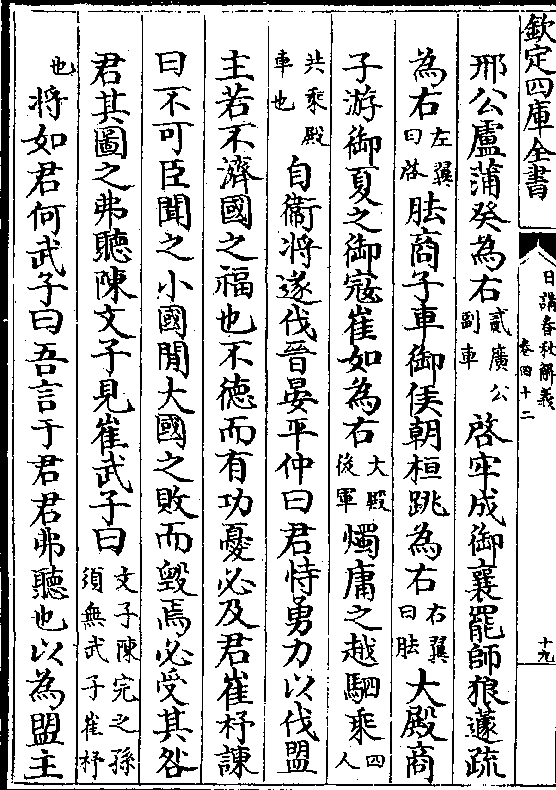 欽定四庫全書
日講春秋解義
卷四十二
十九
邢公盧蒲癸為右貳廣公副車啓牢成御襄罷師狼蘧疏
為右左翼曰啓胠商子車御侯朝桓跳為右右翼曰胠大殿商
子游御夏之御寇崔如為右大殿後軍燭庸之越駟乘四人
共乘殿車也自衛將遂伐晉晏平仲曰君恃勇力以伐盟
主若不濟國之福也不德而有功憂必及君崔杼諫
曰不可臣聞之小國閒大國之敗而毀焉必受其咎
君其圖之弗聽陳文子見崔武子曰文子陳完之孫須無武子崔杼
也將如君何武子曰吾言于君君弗聽也以為盟主